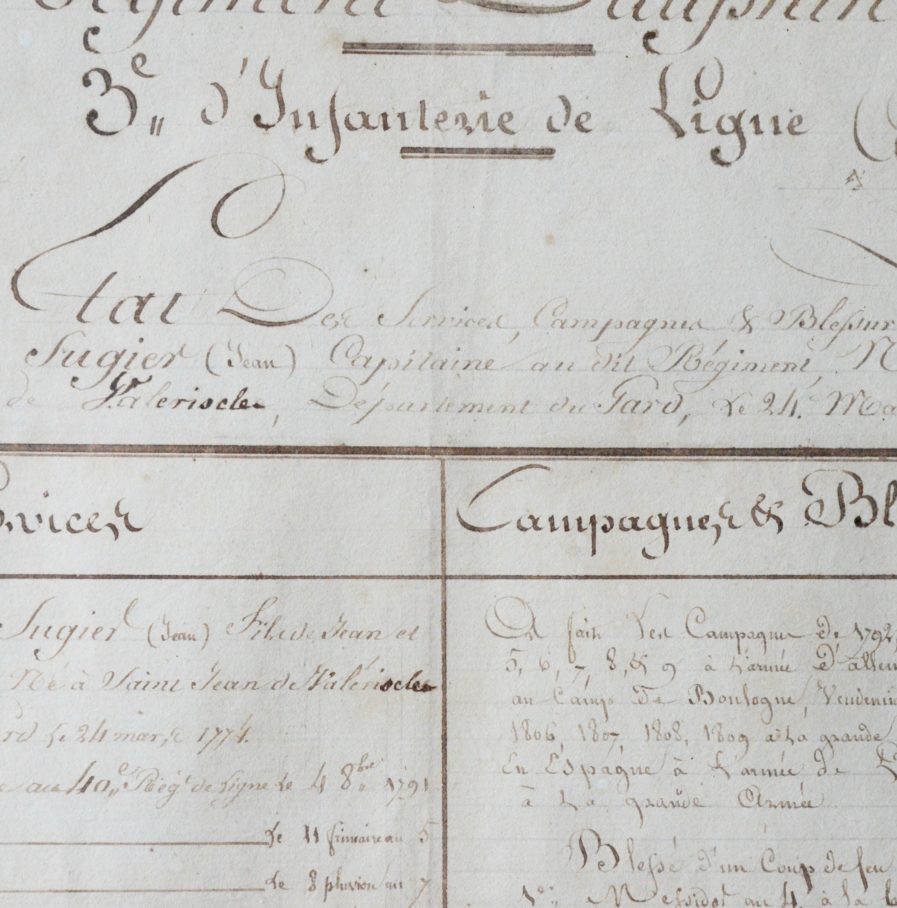 Régiment Dauphin
3e d'Infanterie de Ligne (
Etat Des Services, Campagnes & Blessur
Sugier (Jean) Capitaine au dit Régiment, N
de Valeriscle, Département du Gard, Le 24 Ma
rvices
Campagnes & Bl
Sugier (Jean) Fils de Jean et
Né à Saint Jean de Valeriscle
rd le 24 mars 1774.
au 40e Régt de Ligne le 4 8bre 1791
Le 11 frimaire an 5
Le 8 pluviôse an 7
a fait les Campagnes de 1792,
5, 6, 7, 8, & 9 à l'armée d'allem
au Camp de Boulogne, Vendémi
1806, 1807, 1808, 1809 à la grande
En Espagne à l'armée de
à la grande Armée
Blessé d'un Coup de feu
1er Messidor an 4 à la b